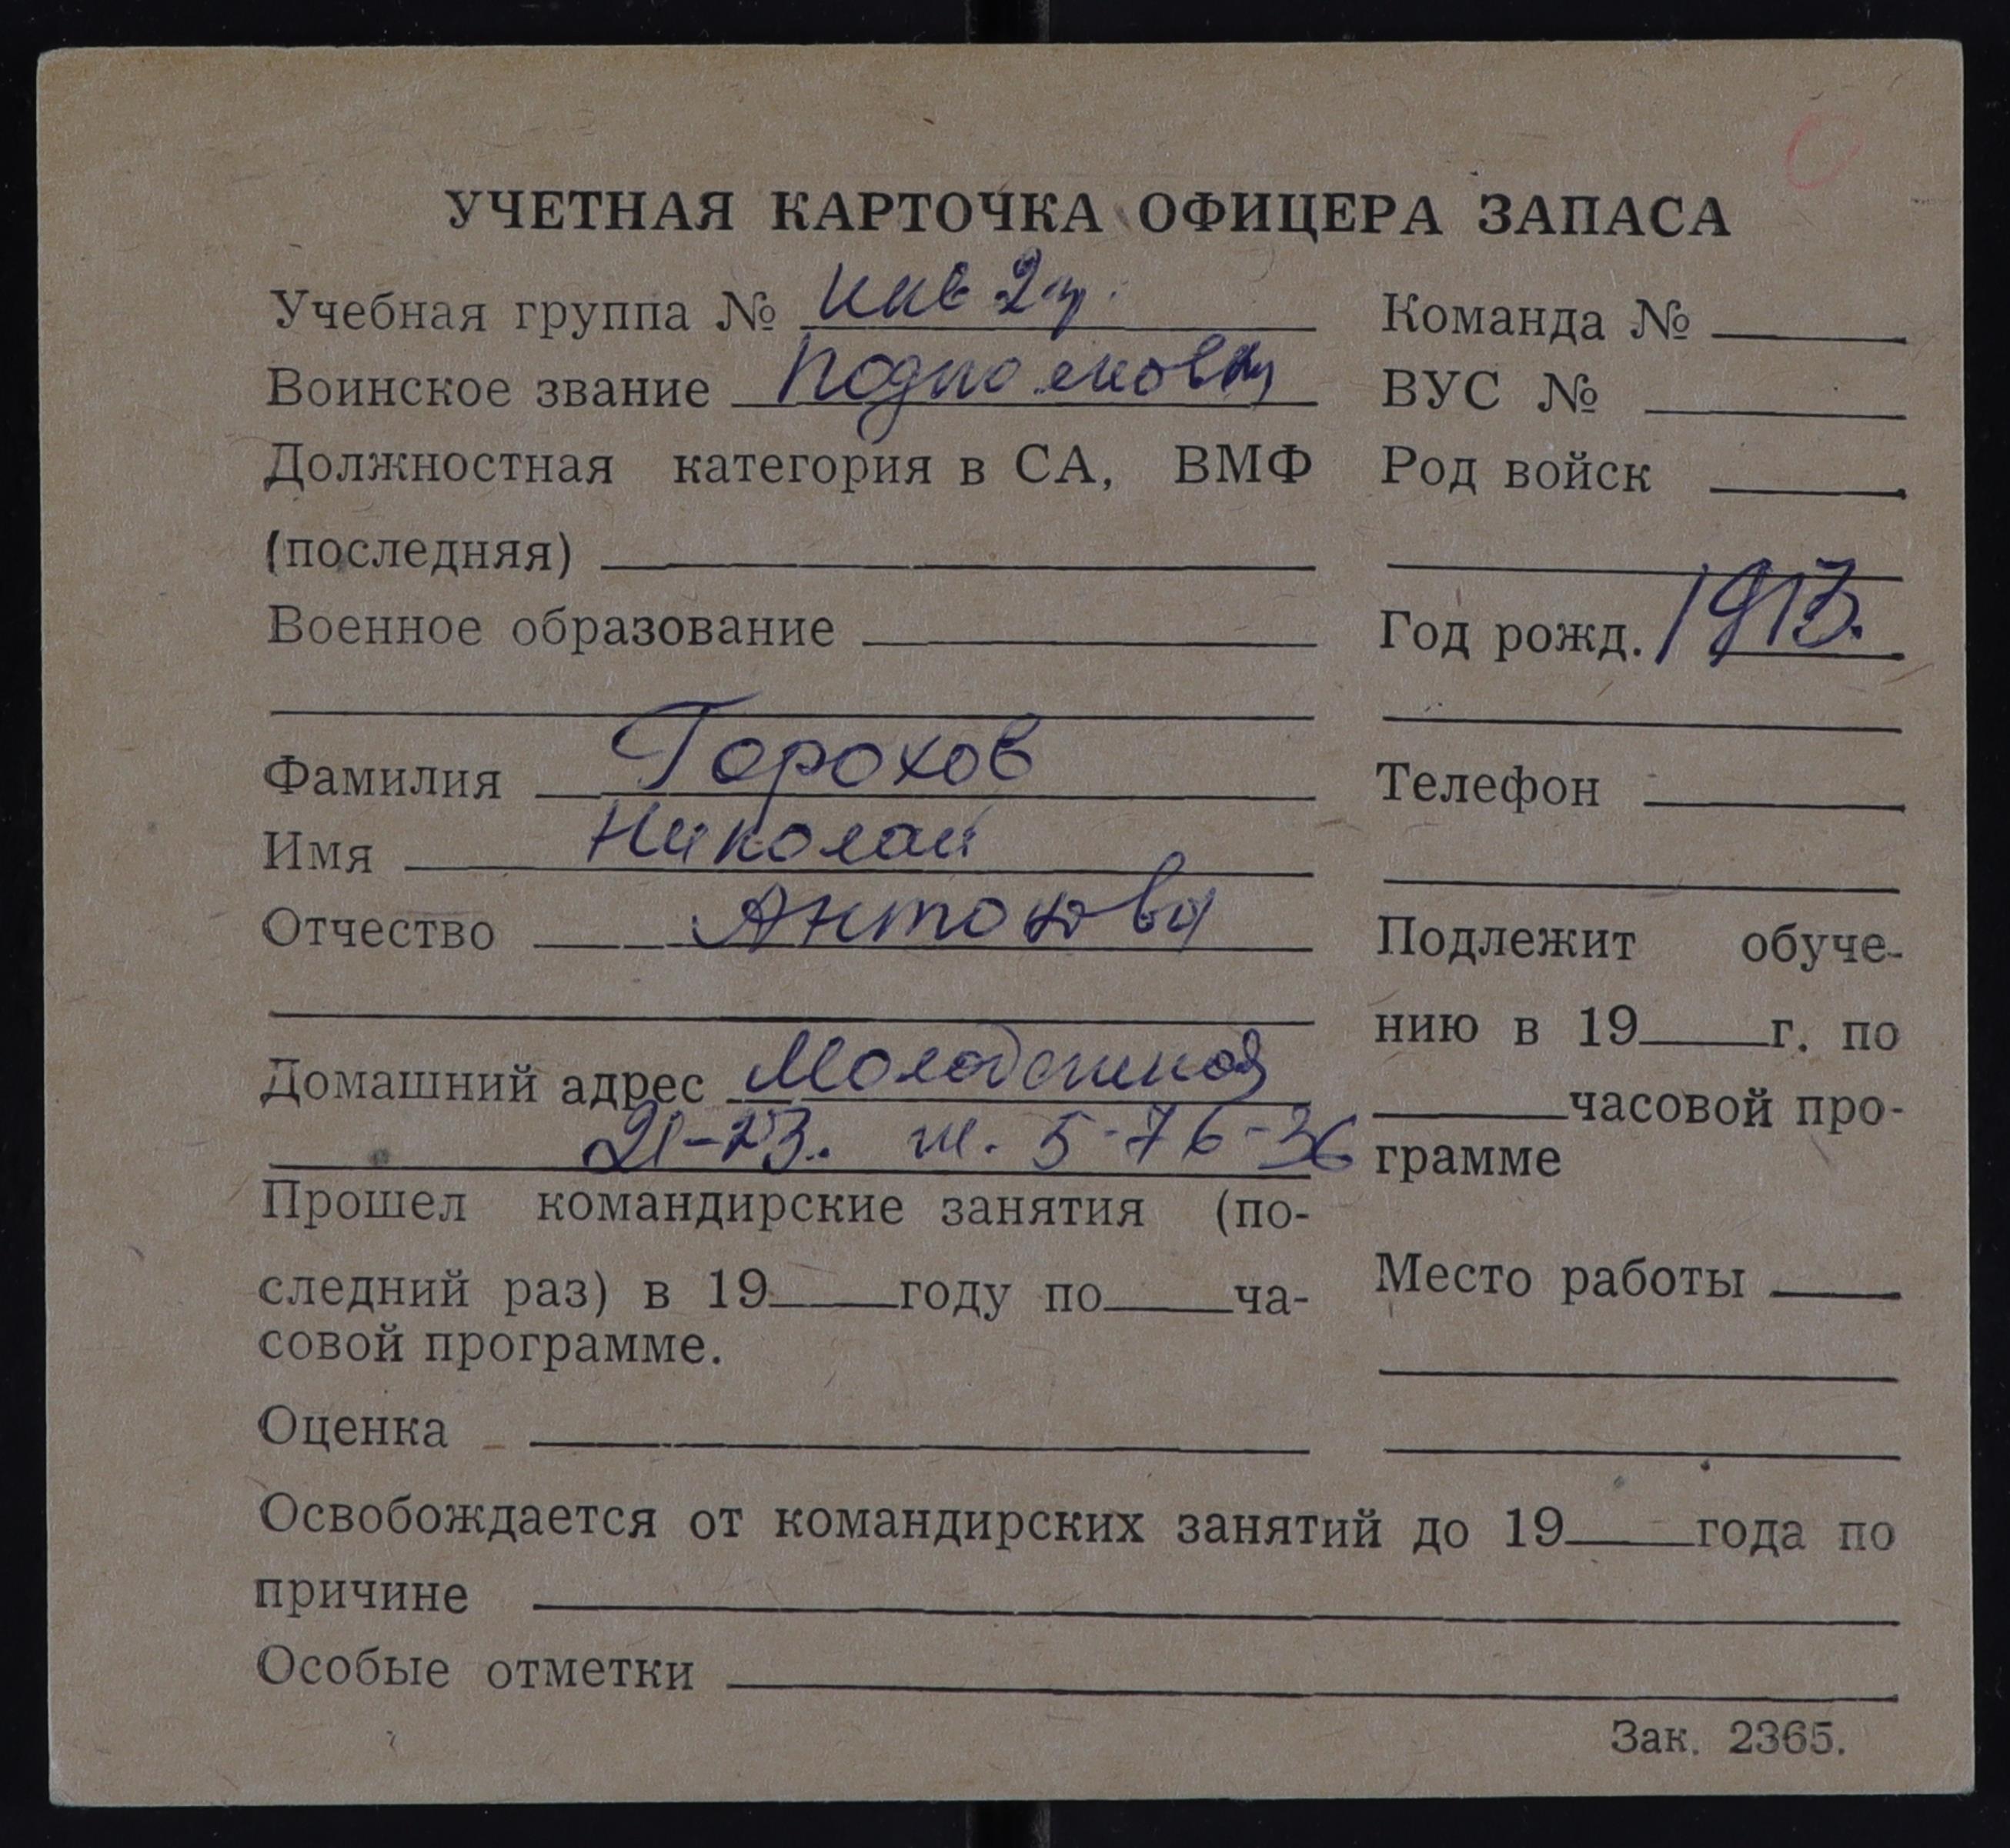 УЧЕТНАЯ КАРТОЧКА ОФИЦЕРА ЗАПАСА
Учебная группа № инв 2 гр.
Воинское звание
Должностная категория в СА, ВМФ
(последняя)
Военное образование
Фамилия Горохов
Имя Николай
Отчество
Домашний адрес
21-23. т. 5-76-36
Прошел командирские занятия (по-
следний раз) в 19 году по ча-
совой программе.
Оценка
Команда №
ВУС №
Род войск
Год рожд. 1913.
Телефон
Подлежит обуче-
нию в 19 г. по
часовой про-
грамме
Место работы
Освобождается от командирских занятий до 19 года по
причине
Особые отметки
Зак. 2365.